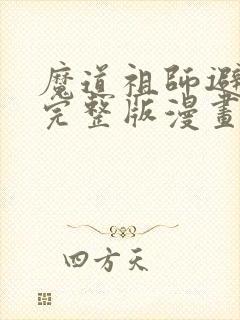 魔道祖師避
完整版漫畫
四方天